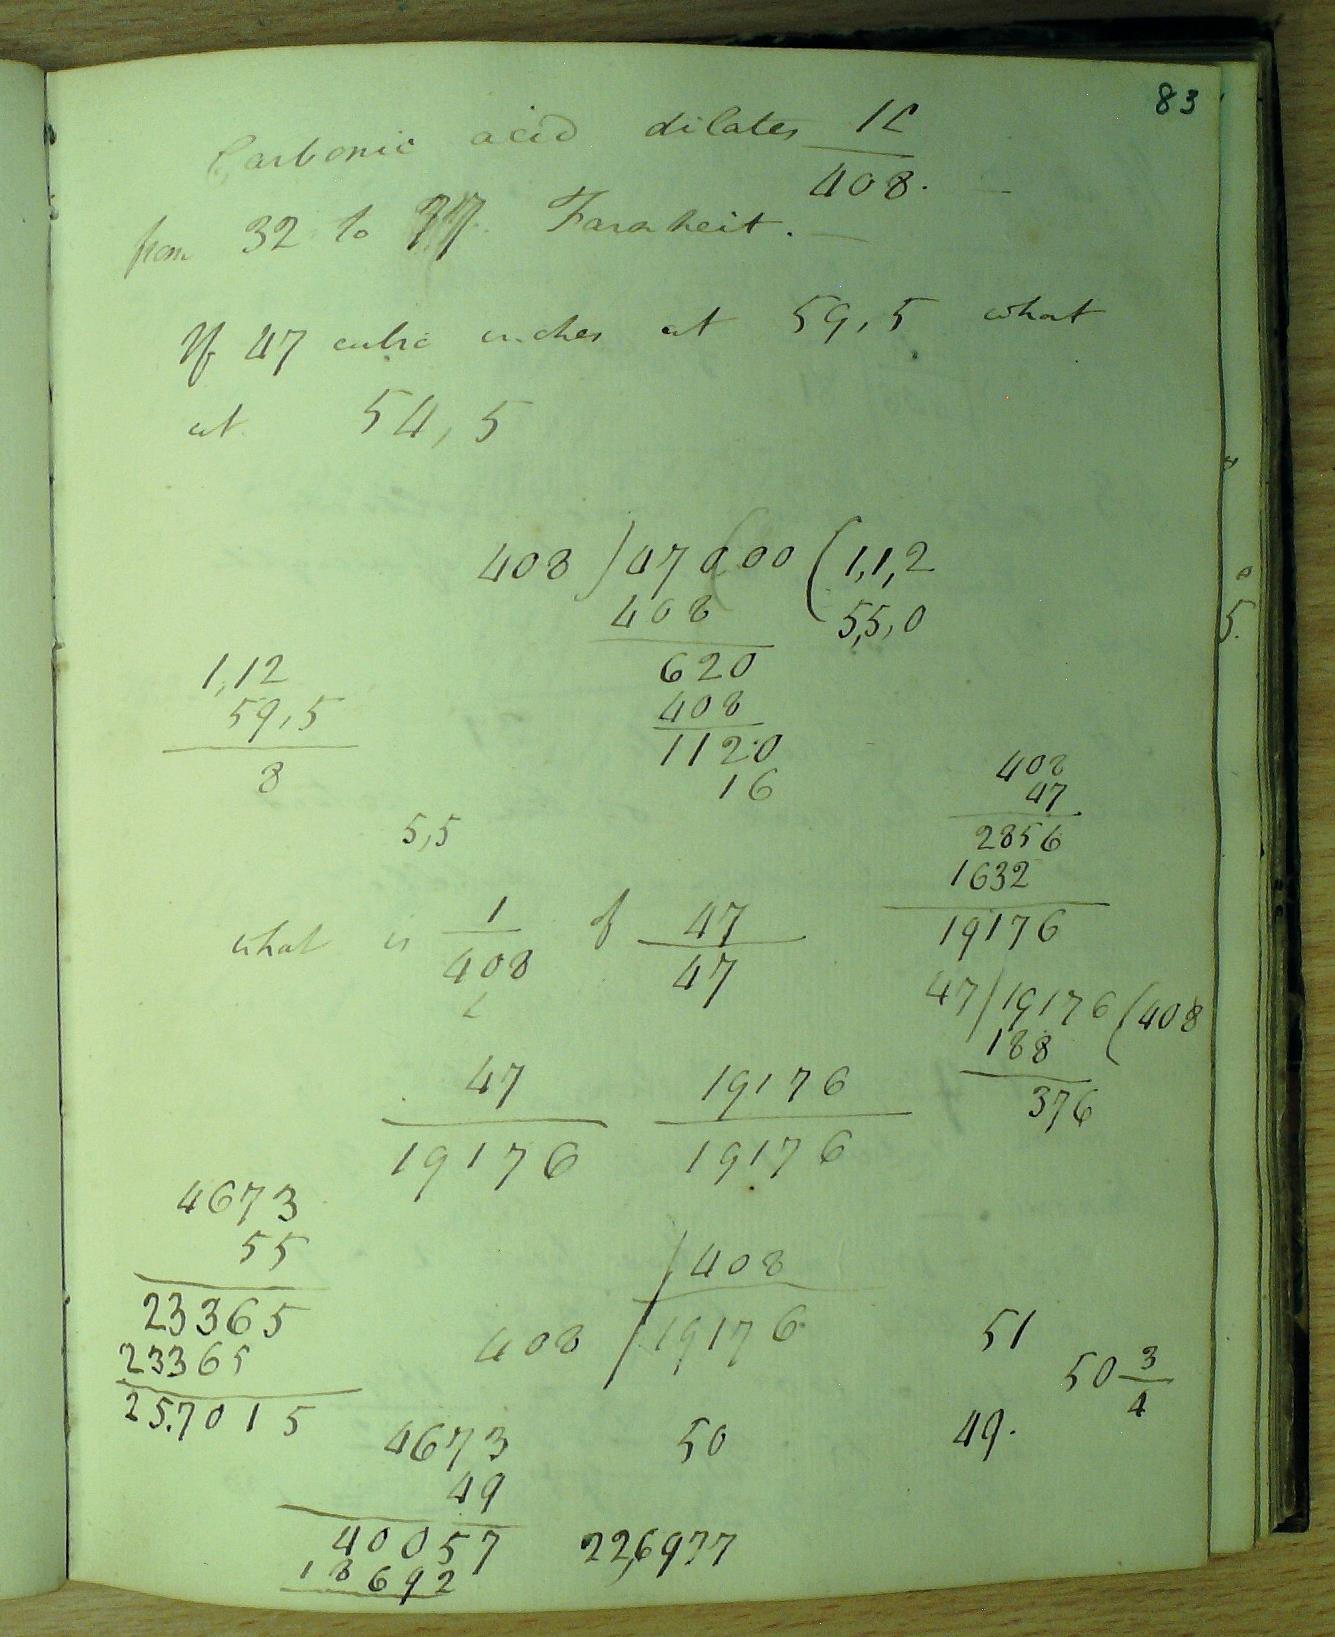 83
Carbonic acid dilates 1
408.
from 32 to Faraheit.
If 47 cubic inches at 59,5 what
at 54,5
408 ) 47 0 00 ( 1,1,2
408 5,5,0
620
408
1120
16
1,12
59,5
8
5,5
408
47
2856
1632
19176
what is 1/408 of 47/47
47 ) 19176 ( 408
188
376
47 19176
19176 19176
4673
55
23365
23365
25.7015
408
408 / 19176
51
50 3/4
50
49.
4673
49
40057
18692
22,6977